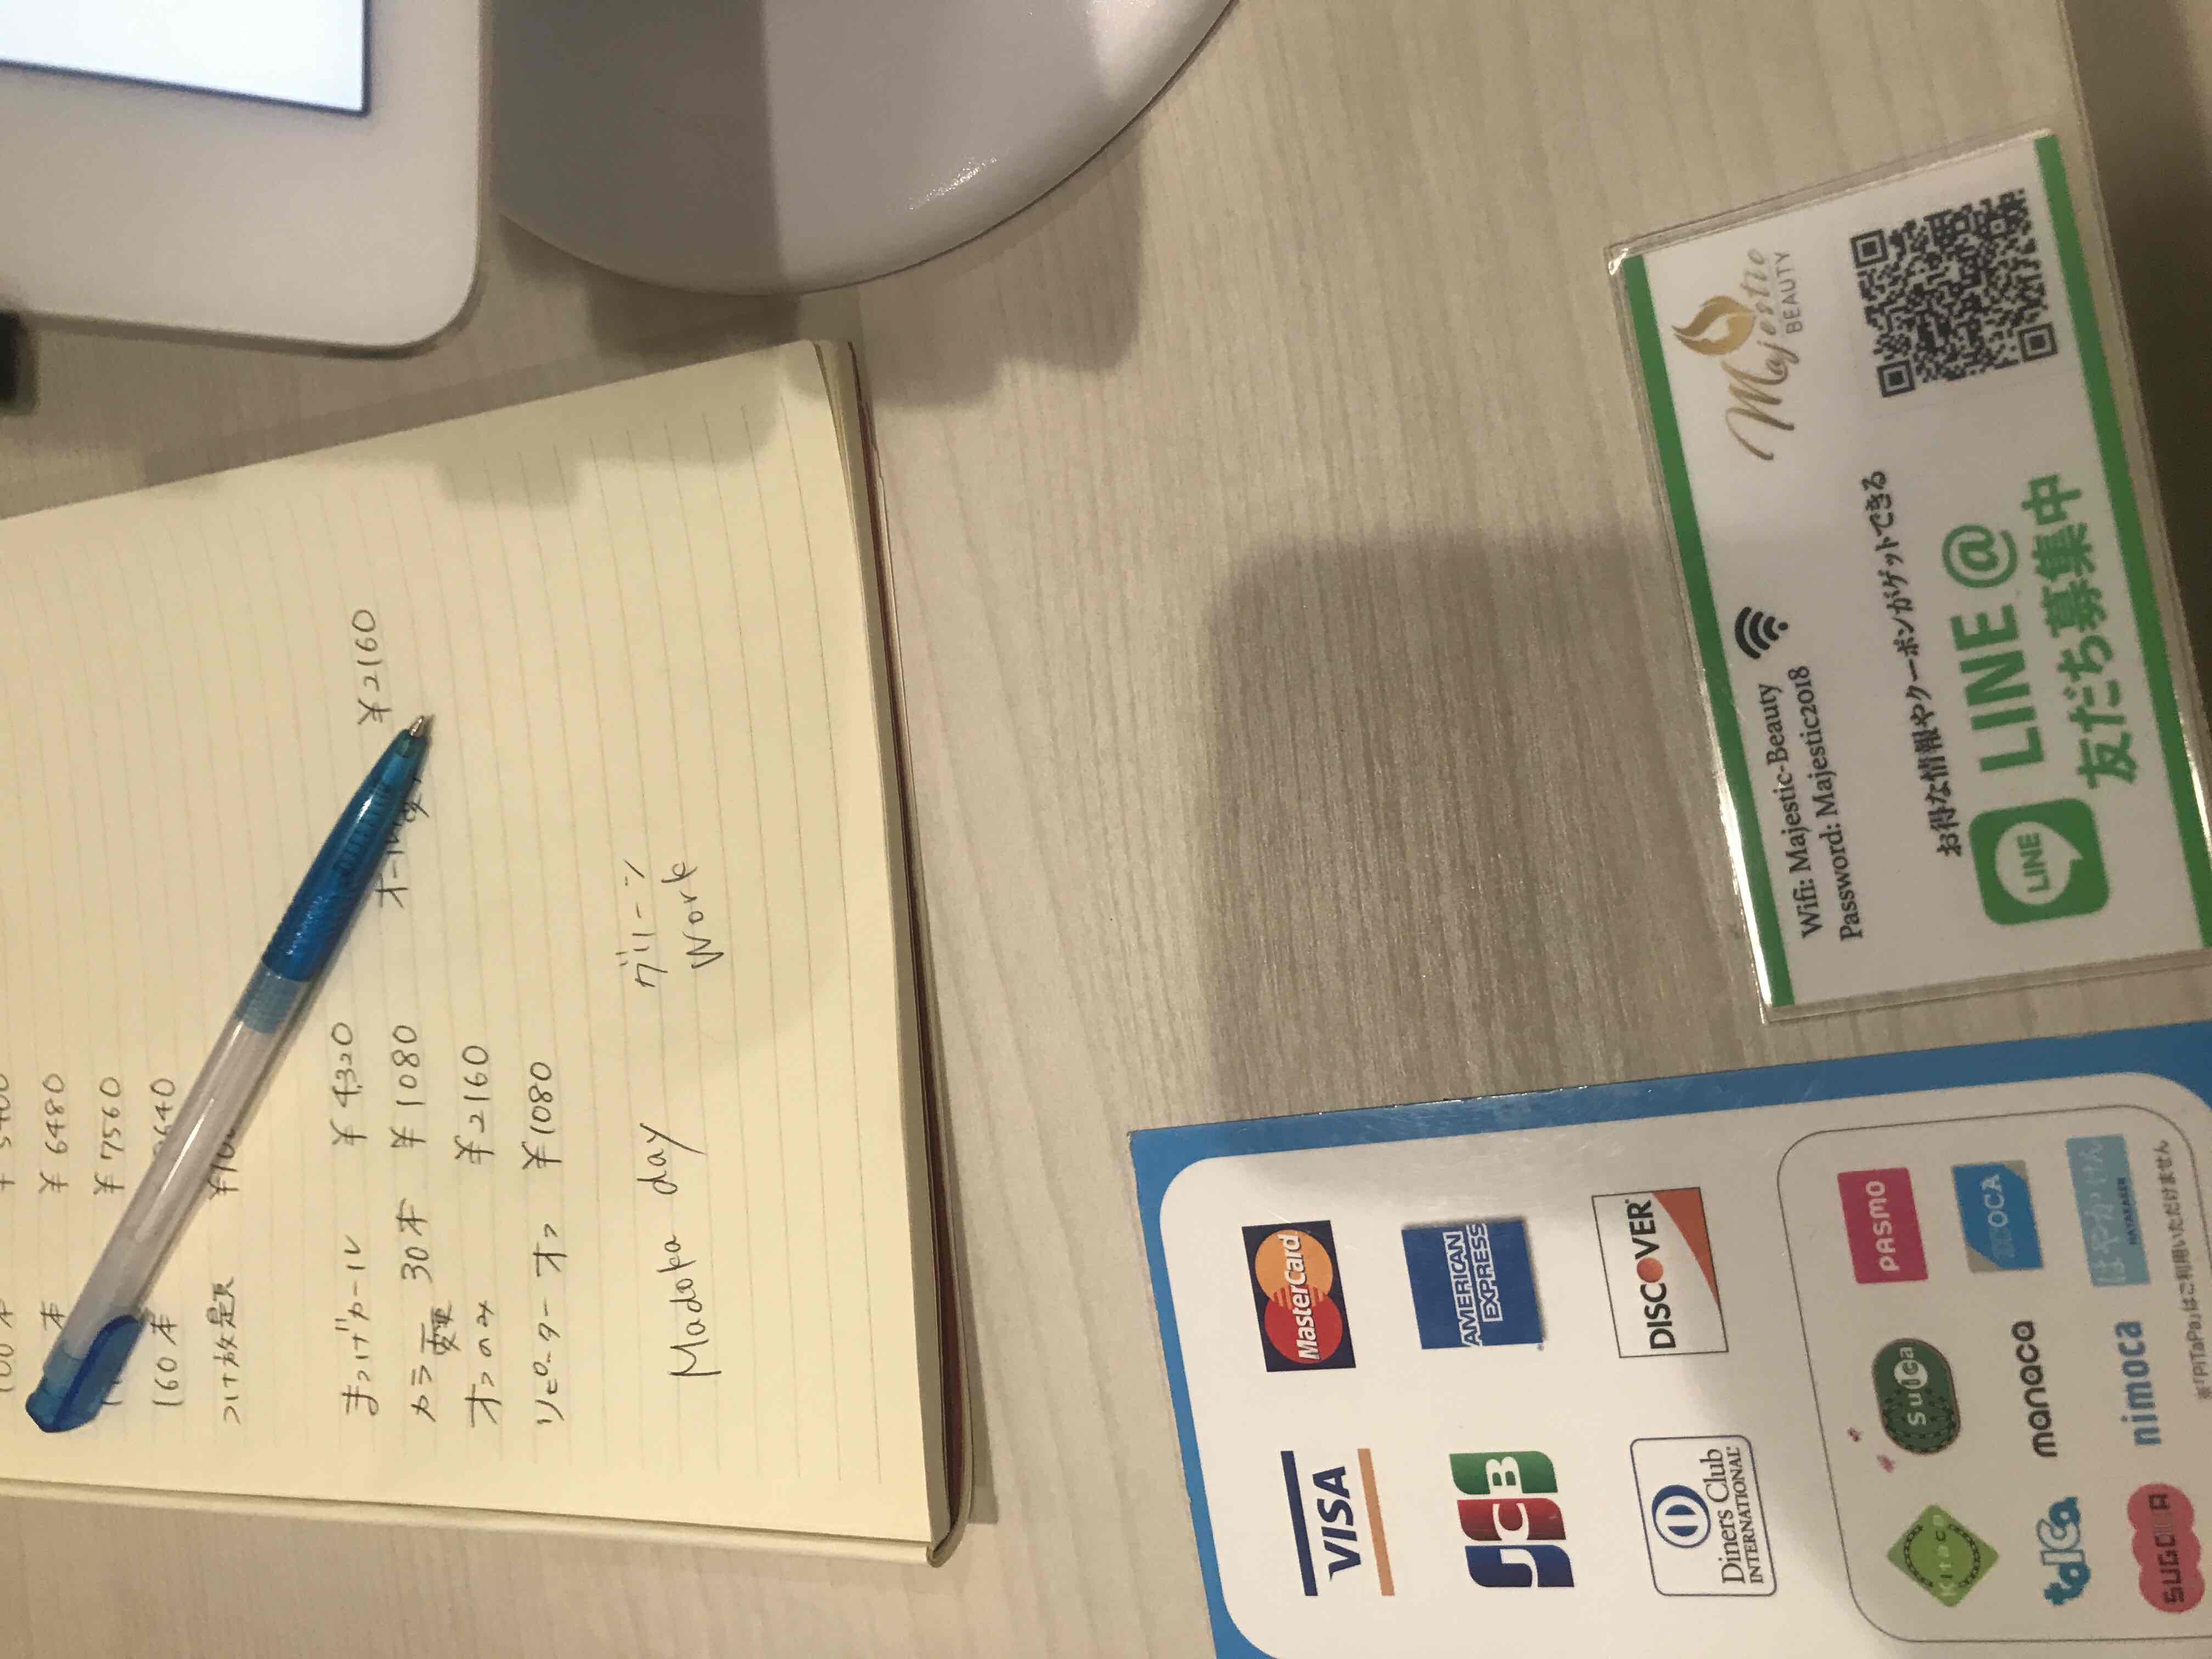 100本 ¥5400
本 ¥6480
¥7560
160本 640
つけ放題 ¥10
まつげカール ¥4,320
カラー変更 30本 ¥1080 オール ¥2160
オフのみ ¥2160
リピーター オフ ¥1080
Madoka day グリーン
Work
VISA MasterCard
JCB AMERICAN EXPRESS
Diners Club INTERNATIONAL DISCOVER
Kitaca Suica PASMO
toICa manaca ICOCA
SUGOCA nimoca はやかけん
HAYAKAKEN
※「PiTaPa」はご利用いただけません
Wifi: Majestic-Beauty
Password: Majestic2018
Majestic
BEAUTY
お得な情報やクーポンがゲットできる
LINE LINE@
友だち募集中